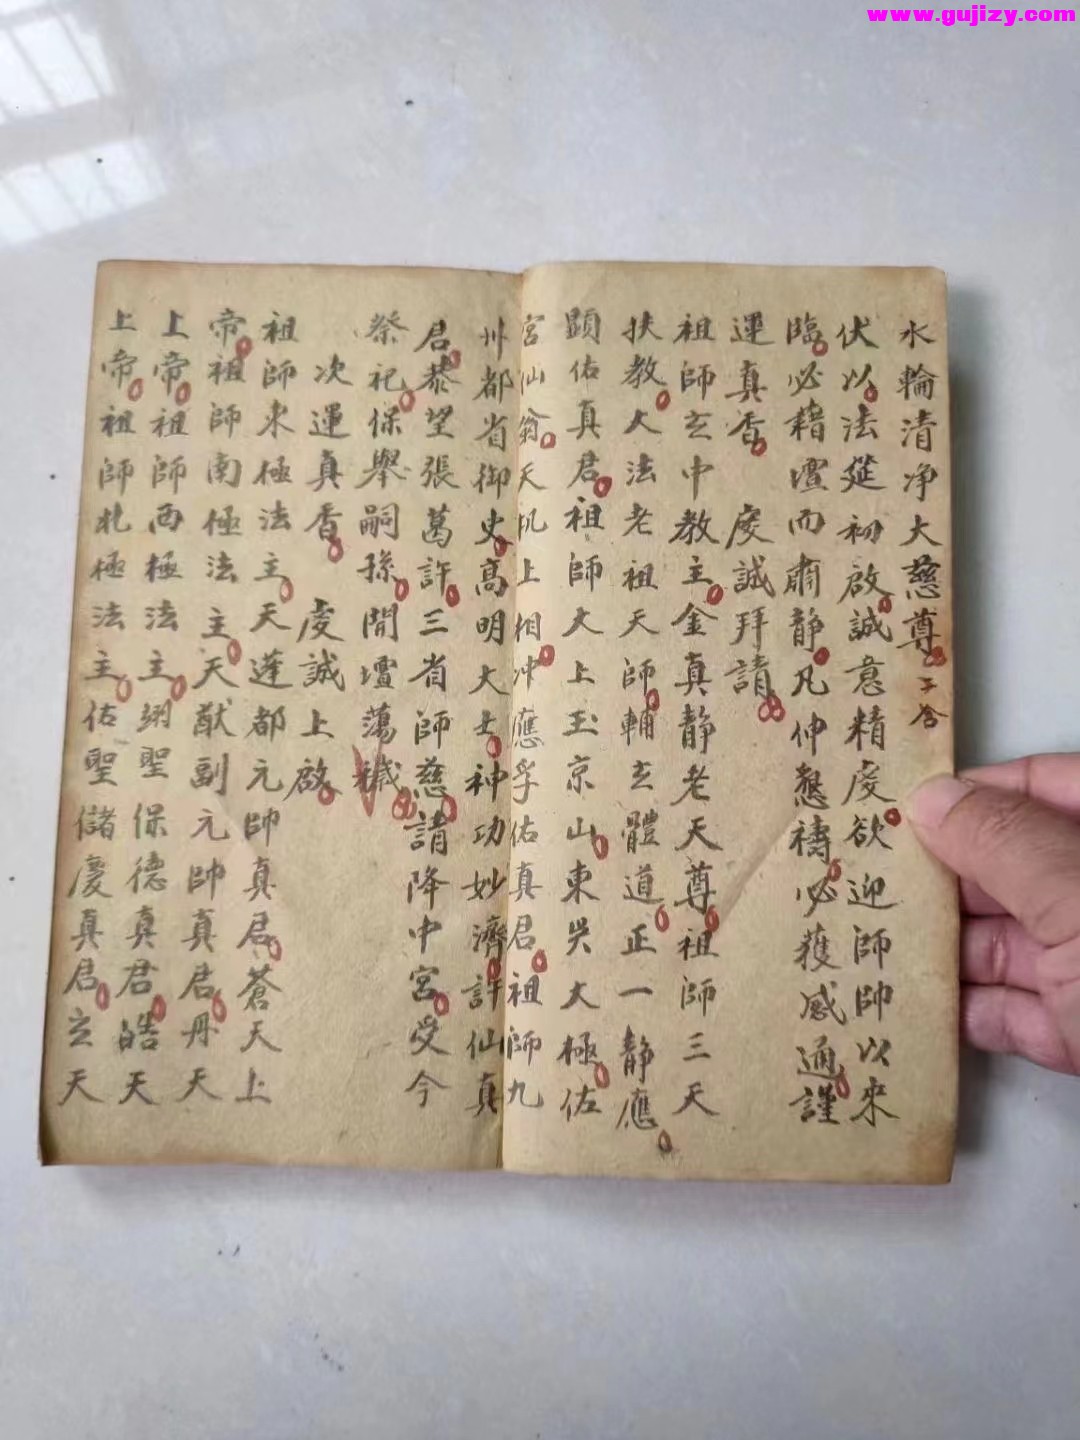 www.gujizy.com
水輪清净大慈尊
伏以法筵初啟誠意精虔欲迎師帥以來
臨必藉壇而肅静凡伸懇禱必獲感通謹
運真香 虔誠拜請
祖師玄中教主金真静老天尊祖師三天
扶教大法老祖天師輔玄體道正一静應
顕佑真君祖師大上玉京山東吴大極佐
宮仙翁天机上相冲應孚佑真君祖師九
州都省御史高明大士神功妙濟許仙真
君恭望張葛許三省師慈請降中宮受今
祭祀保舉嗣孫閒壇蕩穢
次運真香 虔誠上啟
祖師東極法主天蓬都元帥真君蒼天上
帝祖師南極法主天猷副元帥真君丹天
上帝祖師西極法主翊聖保德真君皓天
上帝祖師北極法主佑聖儲慶真君玄天